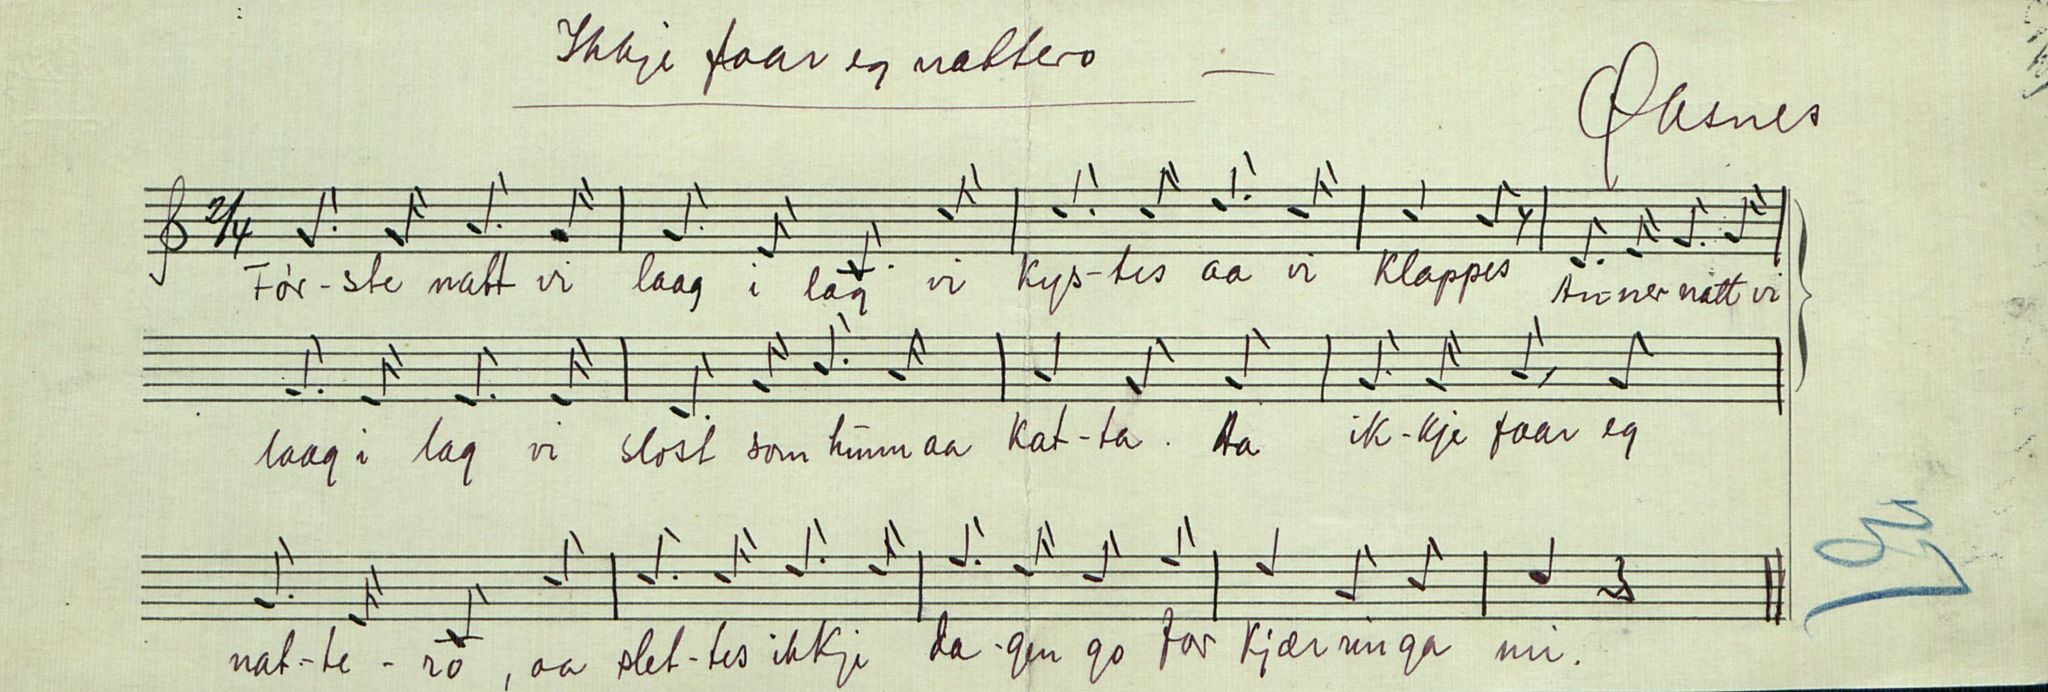 Ikkje faar eg nattero —
Øksnes
2/4
För-ste natt vi laag i lag vi kys-tes aa vi klappes An-ner natt vi
laag i lag vi slost som hunn aa kat-ta. Aa ik-kje faar eg
nat-te-ro, aa slet-tes ikkje da-gen go for kjærringa mi.